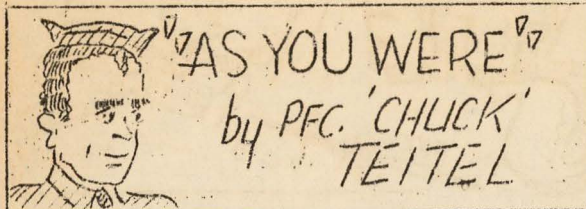 "AS YOU WERE"
by PFC. 'CHUCK'
TEITEL